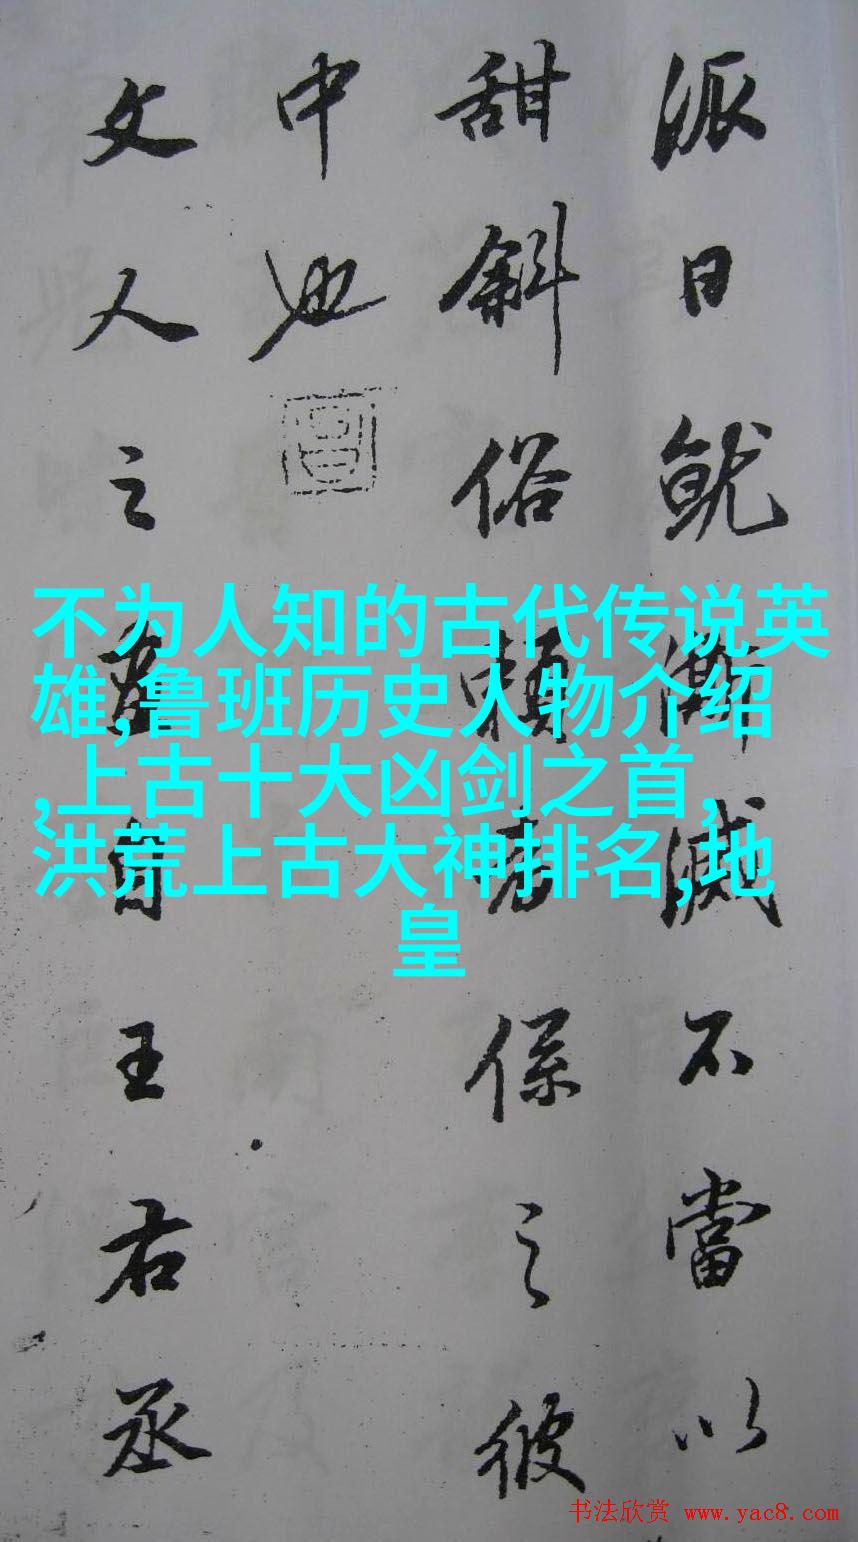 派日就澌滅不當以
甜斜俗賴者係之彼
中也
文人之畫自王右丞
不为人知的古代传说英
雄,鲁班历史人物介绍
,上古十大凶剑之首,
洪荒上古大神排名,地
皇
书法欣赏 www.yac8.com